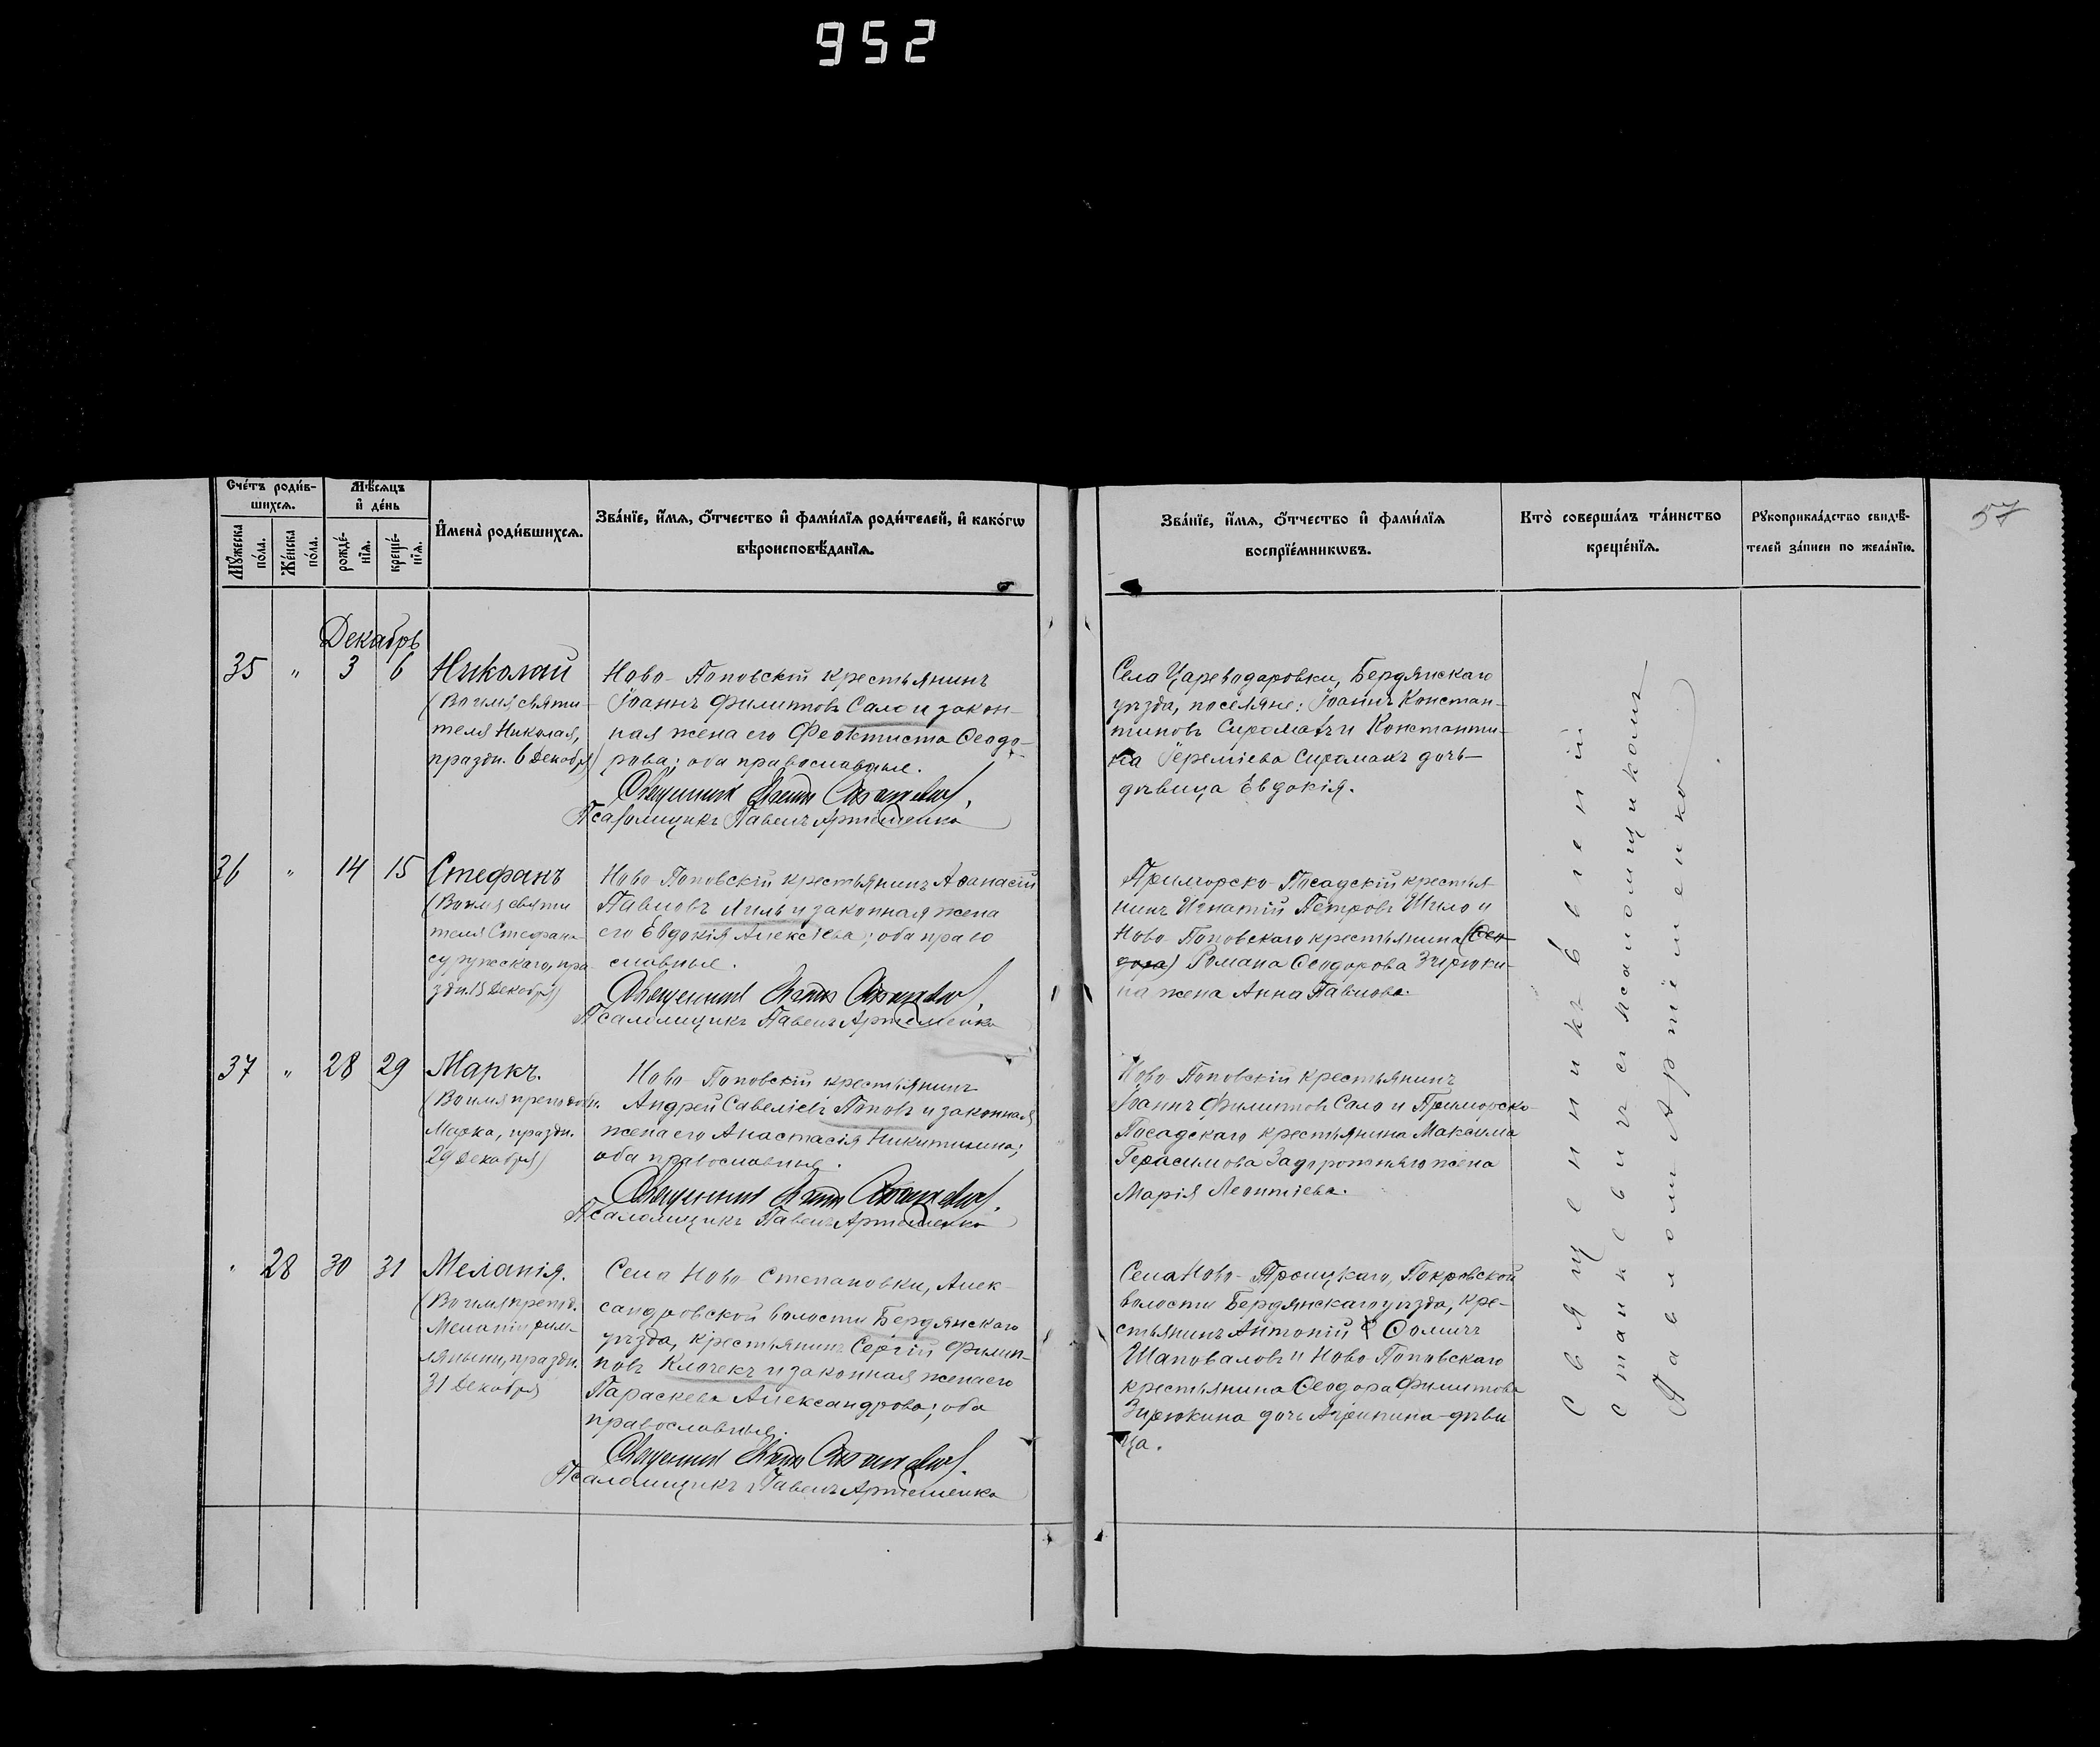 952
57
Счетъ родив-
шихся.
Мужеска
пола.
Женска
пола.
Мѣсяцъ
и день
рожде-
нія.
креще-
нія.
Имена родившихся.
Званіе, имя, отчество и фамилія родителей, и какогѡ
вѣроисповѣданія.
Званіе, имя, отчество и фамилія
воспріемникѡвъ.
Кто совершалъ таинство
крещенія.
Рукоприкладство свидѣ-
телей записи по желанію.
Декабрь
35 " 3 6
Николай
(Во имя святи-
теля Николая,
праздн. 6 Декабря)
Ново-Поповскій крестьянинъ
Іоаннъ Филипповъ Сало и закон-
ная жена его Феоктиста Ѳеодо-
рова; оба православные.
Священникъ
Псаломщикъ Павелъ Артеменко
Села Цареводаровки, Бердянскаго
уѣзда, поселяне: Іоаннъ Констан-
тиновъ Сиромахъ и Константи-
на Іереміева Сиромахъ дочь-
дѣвица Евдокія.
36 " 14 15
Стефанъ
(Во имя святи
теля Стефана
сурожскаго, пра-
здн. 15 Декабря)
Ново-Поповскій крестьянинъ Аѳанасій
Павловъ и законная жена
его Евдокія Алексѣева; оба право
славные.
Священникъ
Псаломщикъ Павелъ Артеменко
Приморско-Посадскій крестья-
нинъ Игнатій Петровъ Шило и
Ново-Поповскаго крестьянина (Ѳео-
дора) Романа Ѳеодорова Зирюки-
на жена Анна Павлова.
37 " 28 29
Маркъ.
(Во имя преподобн.
Марка, праздн.
29 Декабря)
Ново-Поповскій крестьянинъ
Андрей Савеліевъ Поповъ и законная
жена его Анастасія Никитишна;
оба православные.
Священникъ
Псаломщикъ Павелъ Артеменко
Ново-Поповскій крестьянинъ
Іоаннъ Филипповъ Сало и Приморско-
Посадскаго крестьянина Максима
Герасимова Задорожняго жена
Марія Леонтіева.
" 28 30 31
Меланія.
(Во имя препод.
Меланіи рим-
ляныни, праздн.
31 Декабря
Села Ново-Степановки, Алек-
сандровской волости Бердянскаго
уѣзда, крестьянинъ Сергій Филип-
повъ Клочекъ и законная жена его
Параскева Александрова; оба
православные.
Священникъ
Псаломщикъ Павелъ Артеменко
Села Ново-Троицкаго, Покровской
волости Бердянскаго уѣзда, кре-
стьянинъ Антоній Ѳомичъ
Шаповаловъ и Ново-Поповскаго
крестьянина Ѳеодора Филиппова
Зирюкина дочь Агрипина-дѣви
ца.
Священникъ Евгеній
станкевичъ съ псаломщикомъ
Павломъ Артёменко